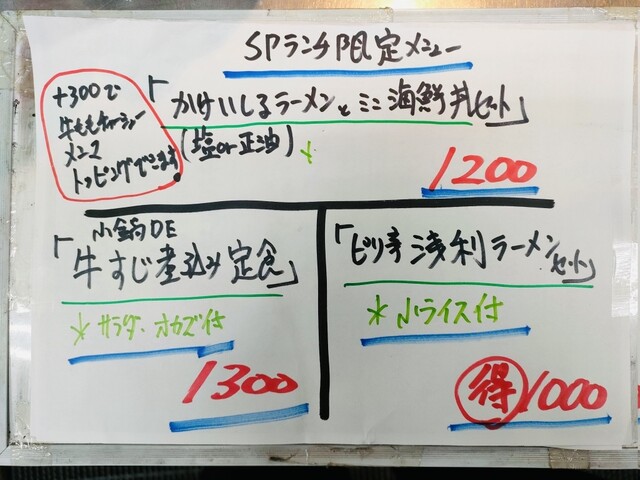 SPランチ限定メニュー
+300で
牛ももチャーシュー
メンマ
トッピングできます!
「かけいしるラーメンとミニ海鮮丼セット」
(塩or正油)
1200
小鍋DE
「牛すじ煮込み定食」
*サラダ・オカズ付
1300
「ピリ辛浅利ラーメンセット」
*小ライス付
得 1000